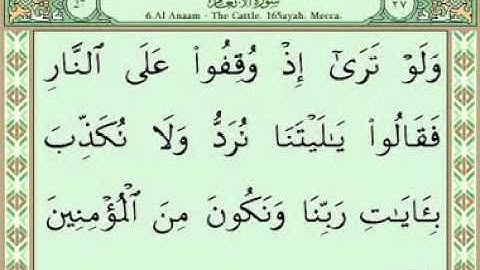 6.Al Anaam - The Cattle. 165ayah. Mecca.
٢٧
وَلَوْ تَرَىٰٓ إِذْ وُقِفُوا۟ عَلَى ٱلنَّارِ
فَقَالُوا۟ يَـٰلَيْتَنَا نُرَدُّ وَلَا نُكَذِّبَ
بِـَٔايَـٰتِ رَبِّنَا وَنَكُونَ مِنَ ٱلْمُؤْمِنِينَ